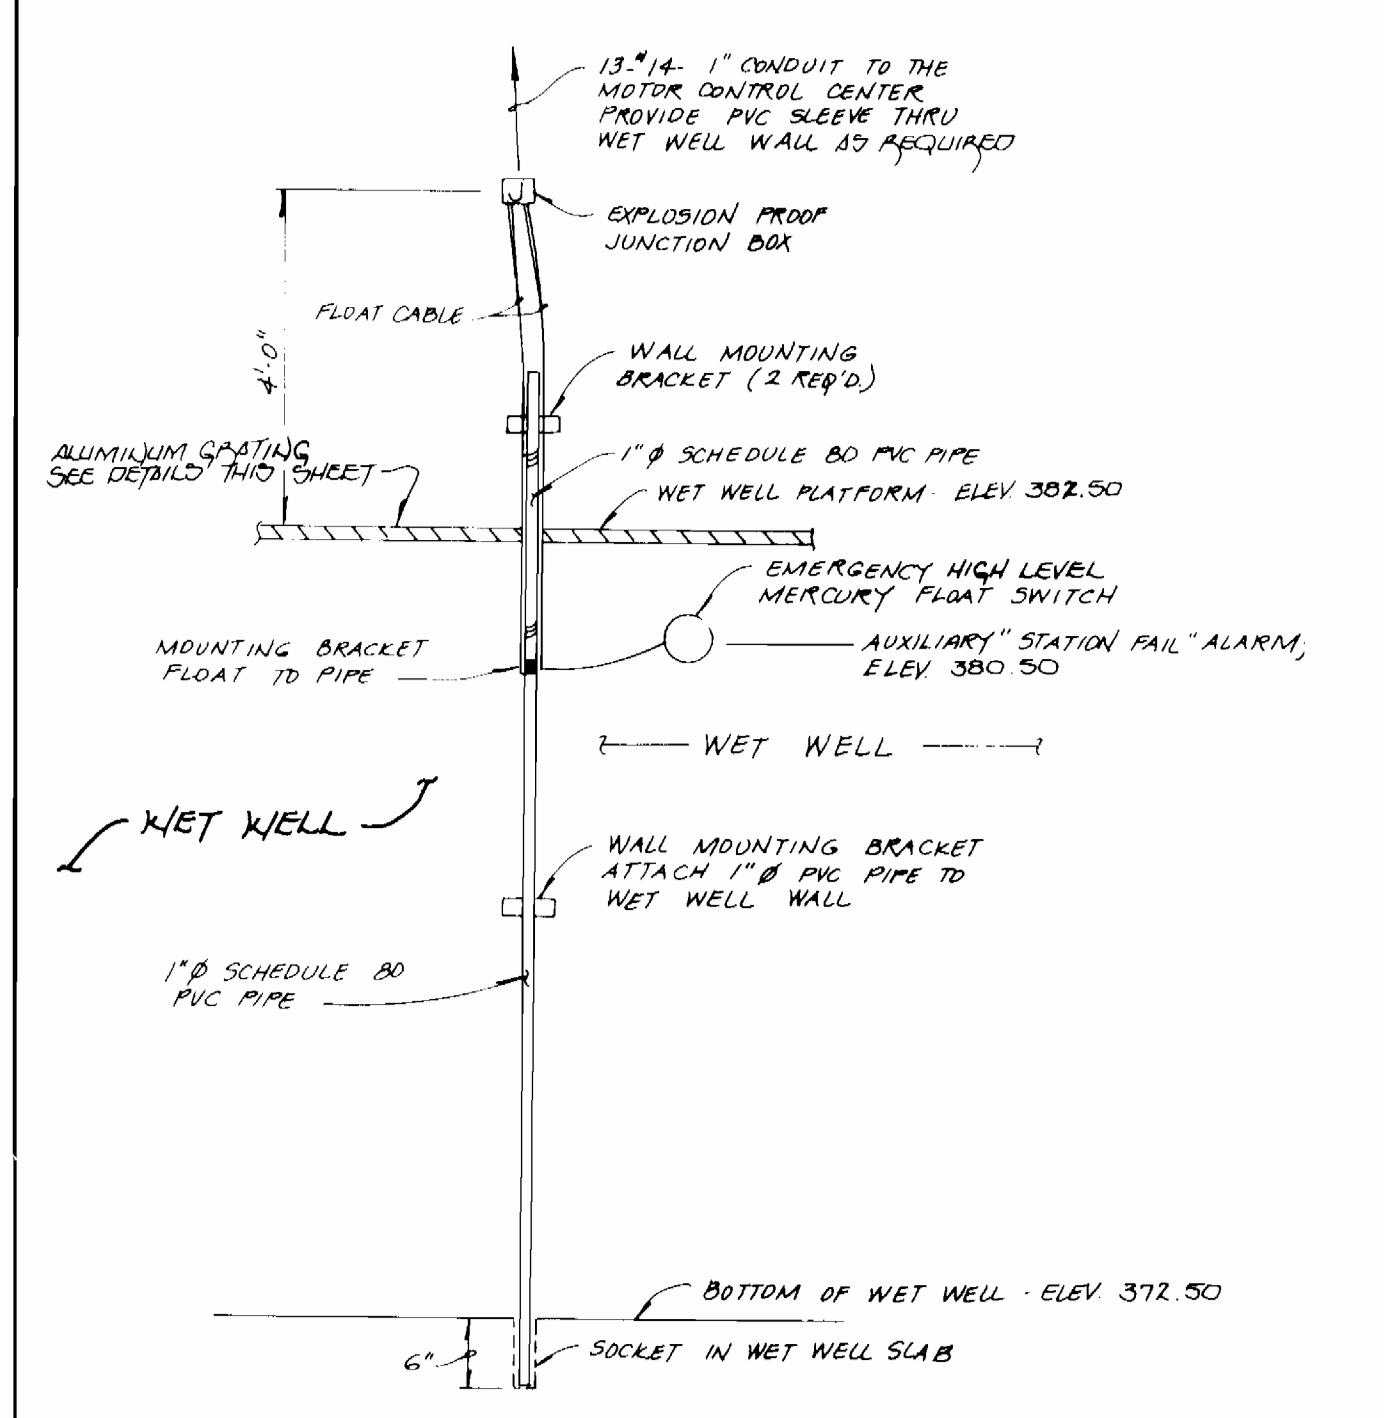 13-#14- 1" CONDUIT TO THE
MOTOR CONTROL CENTER
PROVIDE PVC SLEEVE THRU
WET WELL WALL AS REQUIRED
EXPLOSION PROOF
JUNCTION BOX
FLOAT CABLE
4'-0"
WALL MOUNTING
BRACKET (2 REQ'D.)
ALUMINUM GRATING
SEE DETAILS THIS SHEET
1" Ø SCHEDULE 80 PVC PIPE
WET WELL PLATFORM - ELEV. 382.50
EMERGENCY HIGH LEVEL
MERCURY FLOAT SWITCH
MOUNTING BRACKET
FLOAT TO PIPE
AUXILIARY "STATION FAIL" ALARM,
ELEV. 380.50
WET WELL
WET WELL
WALL MOUNTING BRACKET
ATTACH 1" Ø PVC PIPE TO
WET WELL WALL
1" Ø SCHEDULE 80
PVC PIPE
BOTTOM OF WET WELL - ELEV. 372.50
6"
SOCKET IN WET WELL SLAB